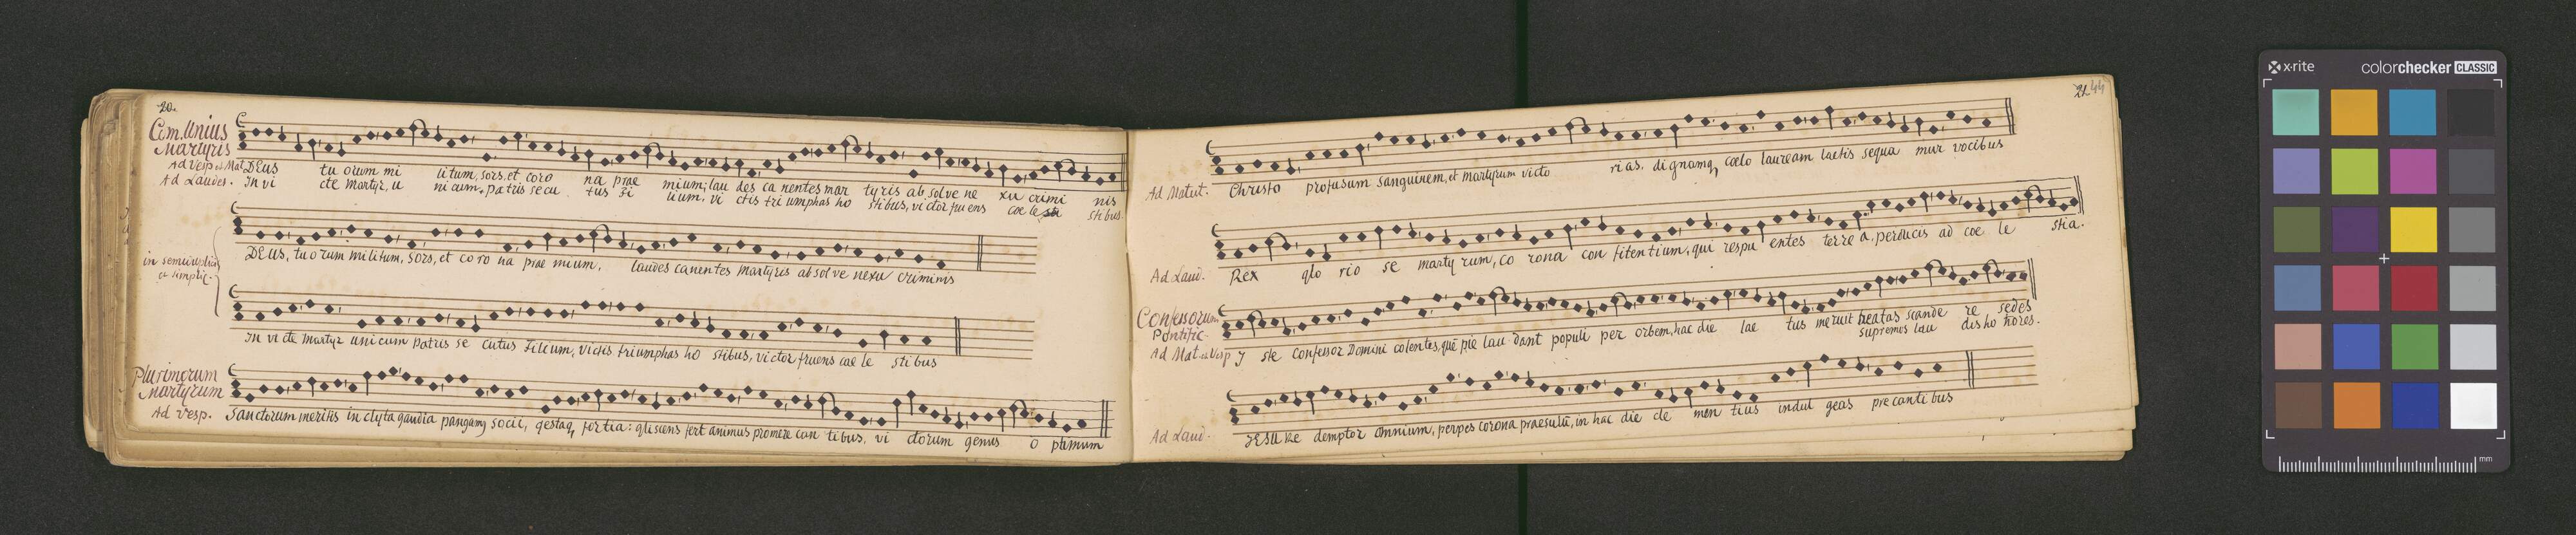 20.
Com. Unius
Martyris
Ad Vesp. et Mat. DEus tu orum mi litum, sors, et coro na prae mium; lau des ca nentes mar tyris ab solve ne xu crimi nis
Ad Laudes. In vi cte martyr, u ni cum. patris secu tus Fi lium, vi ctis tri umphas ho stibus, victor fruens coe le stibus.
in semiduplici
et simplic.
DEus, tuorum militum, sors, et coro na prae mium, laudes canentes martyris absolve nexu criminis
In vi cte martyr unicum patris se cutus Filium, victis triumphas ho stibus, victor fruens coe le stibus
Plurimorum
Martyrum
Ad Vesp. Sanctorum meritis inclyta gaudia pangamq socii, gestaq fortia: gliscens fert animus promere can tibus, vi ctorum genus o ptimum
44
Ad Matut. Christo profusum sanguinem, et martyrum victo rias, dignamq coelo lauream laetis sequa mur vocibus
Ad Laud. Rex glo rio se marty rum, co rona con fitentium, qui respu entes terre a, perducis ad coe le stia.
Confessorum
Pontific.
Ad Mat. et Vesp Y ste confessor Domini colentes, quē pie lau dant populi per orbem, hac die lae tus meruit beatas scande re sedes
supremos lau dis ho nores.
Ad Laud. JESU Re demptor omnium, perpes corona praesulū, in hac die cle men tius indul geas precanti bus
x-rite
colorchecker CLASSIC
mm